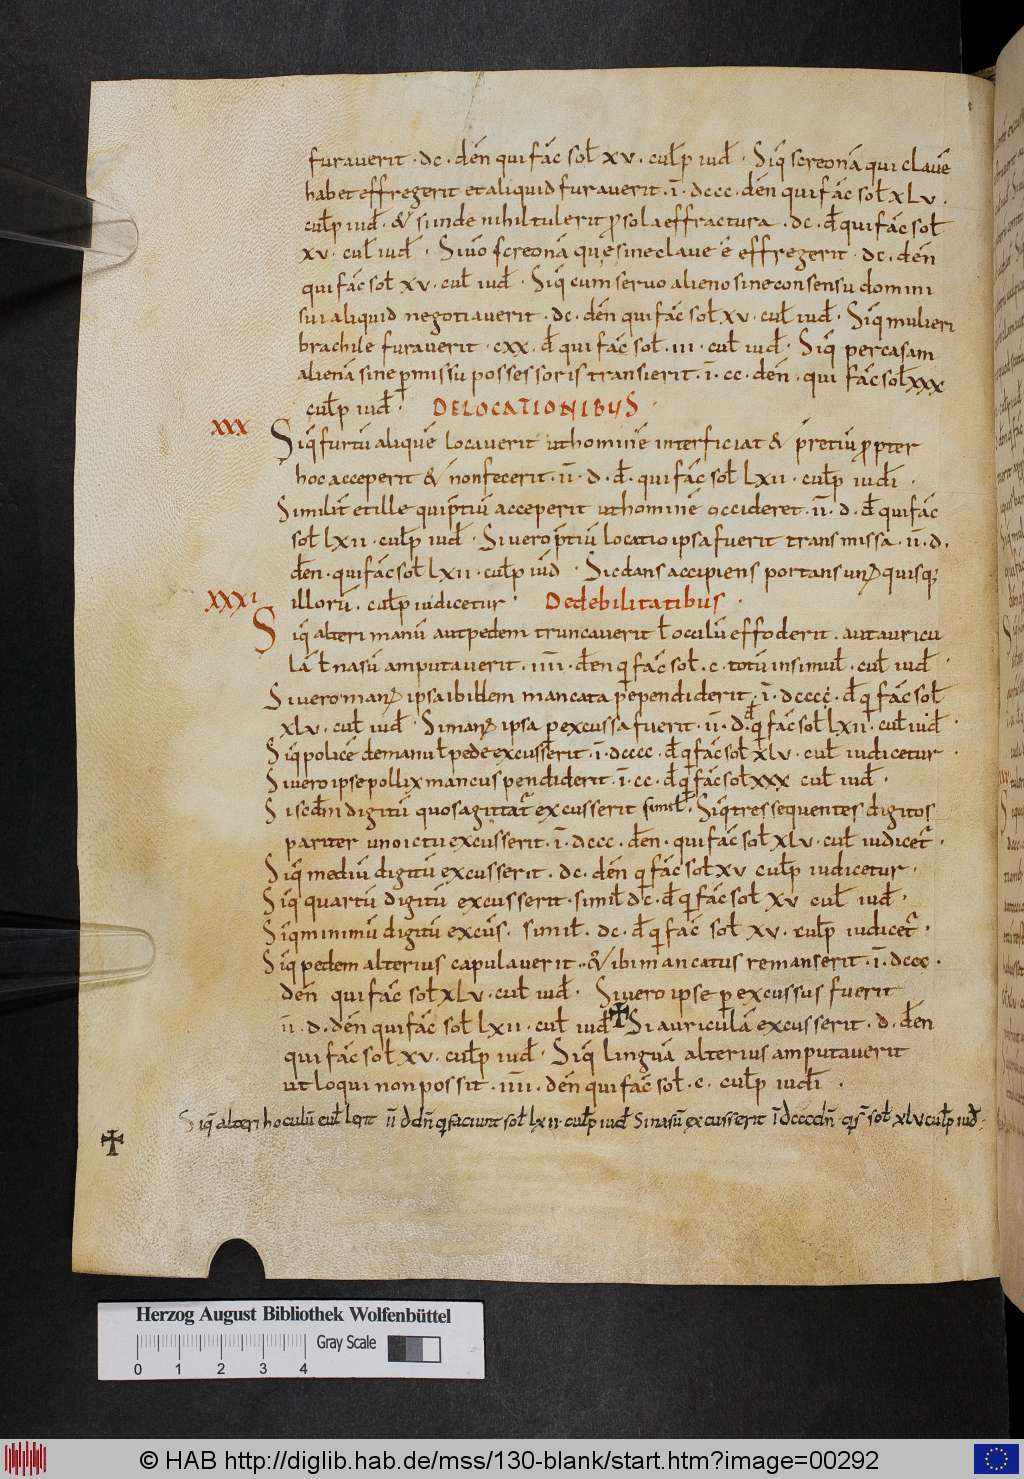 furauerit · dc · deñ qui fac̄ soł xv · culp̄ iud̄ · Siq̄ screonā qui clauē
habet effregerit et aliquid furauerit · ī · dccc · deñ qui fac̄ soł xLv ·
culp̄ iud̄ · & si inde nihil tulerit ꝓ sola effractura · dc · đ qui fac̄ soł
xv · cuł iud̄ · Si uō screonā quę sine claue ē effregerit · dc · deñ
qui fac̄ soł xv · cuł iud̄ · Siq̄ cum seruo alieno sine consensu domini
sui aliquid negotiauerit · dc · deñ qui fac̄ soł xv · cuł iud̄ · Siq̄ mulieri
brachile furauerit · cxx · đ qui fac̄ soł · iii · cuł iud̄ · Siq̄ per casam
alienā sine p̄missu possessoris transierit · ī · cc · deñ · qui fac̄ soł xxx
culp̄ iud̄ · DE LOCATIONIBUS ·
xxx Siq̄ furtū aliquē locauerit ut hominē interficiat & p̄retiū ꝓpter
hoc acceperit & non fecerit · īī · d · đ · qui fac̄ soł Lxii · culp̄ iudi ·
Similit̄ et ille qui p̄tiū acceperit ut hominē occideret · īī · d · đ qui fac̄
soł lxii · culp̄ iud̄ · Si uero p̄tiū locatio ipsa fuerit transmissa · īī · d ·
đen · qui fac̄ soł lxii · culp̄ iud̄ · Sic dans accipiens portans unꝰ quisq;
xxxi illorū · culp̄ iudicetur · De debilitatibus ·
Siq̄ alteri manū aut pedem truncauerit ł oculū effoderit · aut auricu
lā ł nasū amputauerit · iiii · đen q̄ fac̄ soł · c · totū insimuł · cuł iud̄ ·
Si uero manꝰ ipsa ibidem mancata pependiderit · ī · dcccc · đ q̄ fac̄ soł
xLv · cuł iud̄ · Si manꝰ ipsa pexcussa fuerit · īī · d · đ q̄ fac̄ soł Lxii · cuł iud̄ ·
Siq̄ policē de manu ł pede excusserit · ī · dcccc · đ q̄ fac̄ soł xLv · cuł iudicetur ·
Si uero ipse pollix mancus pendiderit · ī · cc · đ q̄ fac̄ soł xxx cuł iud̄ ·
Si scđm digitū quo sagittat̄ excusserit simił · Siq̄ tres sequentes digitos
pariter uno ictu excusserit · ī · dccc · đen · qui fac̄ soł xLv · cuł iudicet̄ ·
Siq̄ mediū digitū excusserit · dc · deñ q̄ fac̄ soł xv culp̄ iudicetur ·
Siq̄ quartū digitū excusserit · simił dc · đ q̄ fac̄ soł xv cuł iud̄ ·
Siq̄ minimū digitū excus̄ · simił · dc · đ q̄ fac̄ soł xv · culp̄ iudicet̄ ·
Siq̄ pedem alterius capulauerit · & ibi mancatus remanserit · ī · dccc ·
deñ qui fac̄ soł xLv · cuł iud̄ · Si uero ipse p̄excussus fuerit
īī · d · deñ qui fac̄ soł Lxii · cuł iud̄ ✠ Si auriculā excusserit · d · đen
qui fac̄ soł xv · culp̄ iud̄ · Siq̄ linguā alterius amputauerit
ut loqui non possit · iiii · deñ qui fac̄ soł · c · culp̄ iudi ·
✠ Siq̄ alteri hoculū culłerit īī d dñ q̄ faciunt soł lxii · culp̄ iud̄ Si nasū excusserit ī dcccc dñ · q̄ f̄ soł xLv culp̄ iud̄ ·
Herzog August Bibliothek Wolfenbüttel
Gray Scale
0 1 2 3 4
© HAB http://diglib.hab.de/mss/130-blank/start.htm?image=00292